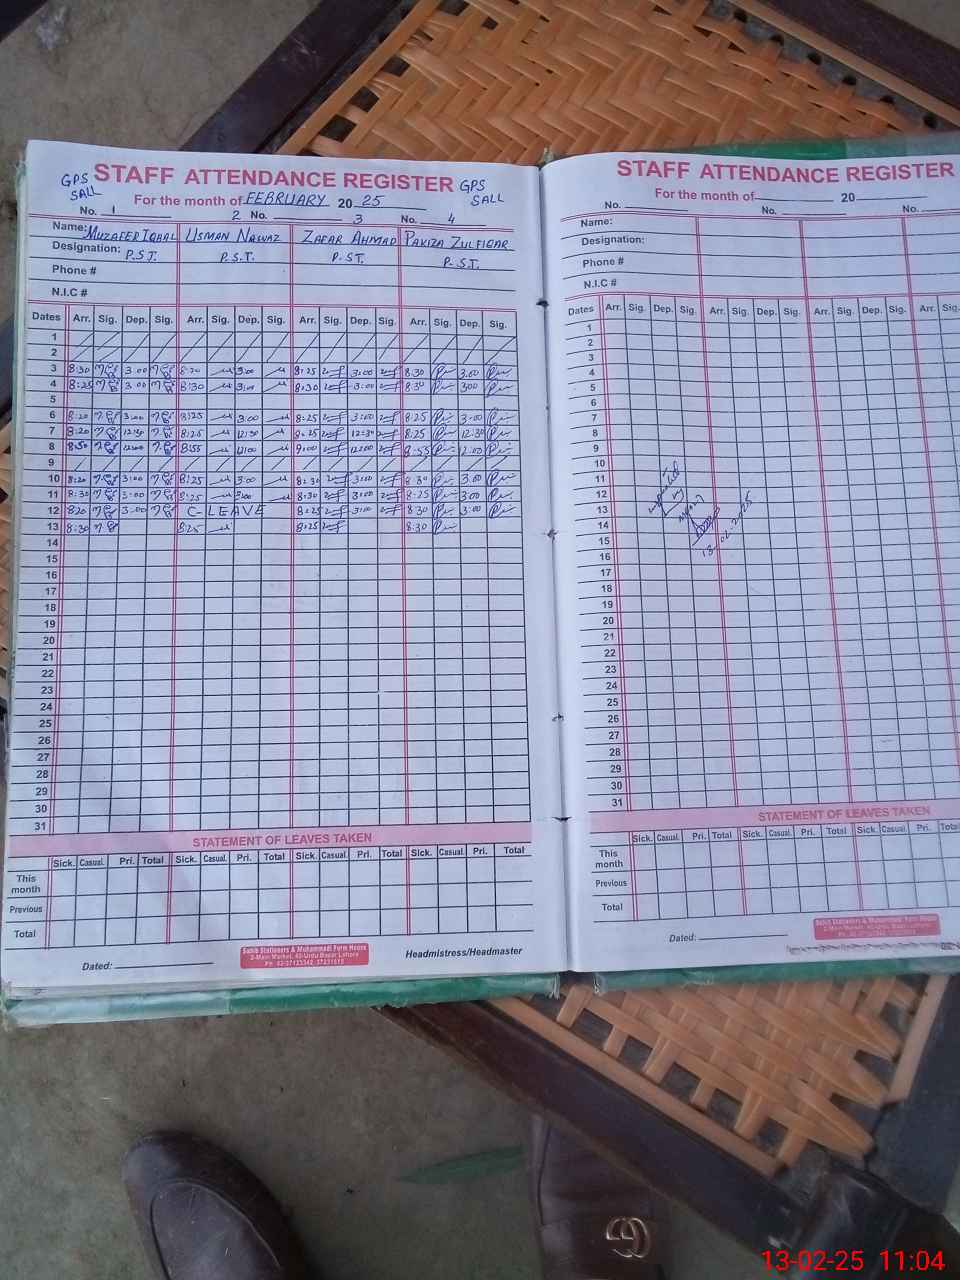 GPS SALL STAFF ATTENDANCE REGISTER GPS SALL
For the month of FEBRUARY 20 25
No. 1 2 No. 3 No. 4
Name: MUZAFER IQBAL USMAN NAWAZ ZAFAR AHMAD PAKIZA ZULFIQAR
Designation: P.S.T. P.S.T. P.ST. P.S.T.
Phone #
N.I.C #
Dates Arr. Sig. Dep. Sig. Arr. Sig. Dep. Sig. Arr. Sig. Dep. Sig. Arr. Sig. Dep. Sig.
1
2
3 8:30 3:00 8:20 3:00 8:25 3:00 8:30 3:00
4 8:25 3:00 8:30 3:00 8:30 3:00 8:30 300
5
6 8:20 3:00 8:25 3:00 8:25 3:00 8:25 3:00
7 8:20 12:30 8:25 12:30 8:25 12:30 8:25 12:30
8 8:50 12:00 8:55 12:00 9:00 12:00 8:55 12:00
9
10 8:20 3:00 8:25 3:00 8:30 3:00 8:30 3:00
11 8:30 3:00 8:25 3:00 8:30 3:00 8:25 3:00
12 8:20 3:00 C-LEAVE 8:25 3:00 8:30 3:00
13 8:30 8:25 8:25 8:30
14
15
16
17
18
19
20
21
22
23
24
25
26
27
28
29
30
31
STATEMENT OF LEAVES TAKEN
Sick. Casual. Pri. Total Sick. Casual. Pri. Total Sick. Casual. Pri. Total Sick. Casual. Pri. Total
This month
Previous
Total
Dated:
Sahib Stationers & Muhammadi Form House
2-Main Market, 40-Urdu Bazar Lahore
Headmistress/Headmaster
STAFF ATTENDANCE REGISTER
For the month of 20
No. No. No.
Name:
Designation:
Phone #
N.I.C #
Dates Arr. Sig. Dep. Sig. Arr. Sig. Dep. Sig. Arr. Sig. Dep. Sig. Arr.
1
2
3
4
5
6
7
8
9
10
11
12
13
14
15
16
17
18
19
20
21
22
23
24
25
26
27
28
29
30
31
13-02-2025
STATEMENT OF LEAVES TAKEN
Sick. Casual. Pri. Total Sick. Casual. Pri. Total Sick. Casual. Pri. Total
This month
Previous
Total
Dated:
Sahib Stationers & Muhammadi Form House
2-Main Market, 40-Urdu Bazar Lahore
13-02-25 11:04